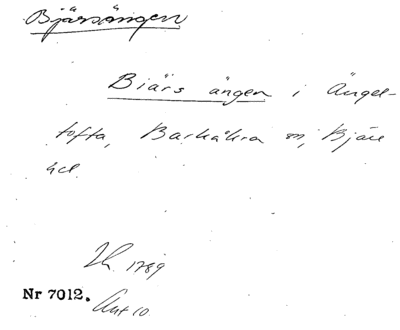 Bjärsängen
Biärs ängen i Ängel-
tofta, Barkåkra sn, Bjäre
hd.
Lh. 1789
Nr 7012.
Akt 10